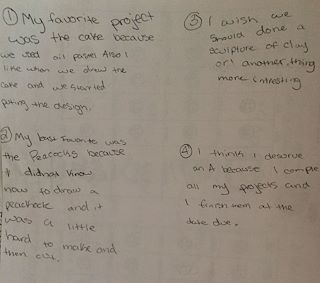 ① My favorite project
was the cake because
we used oil pastel Also I
like when we drew the
cake and we started
puting the design.
② My best favorite was
the Peacocks because
I didnot know
how to draw a
peackock and it
was a little
hard to make and
then cut.
③ I wish we
should done a
sculpture of clay
or another thing
more intresting
④ I think I deserve
an A because I comple
all my projects and
I finish them at the
date due.